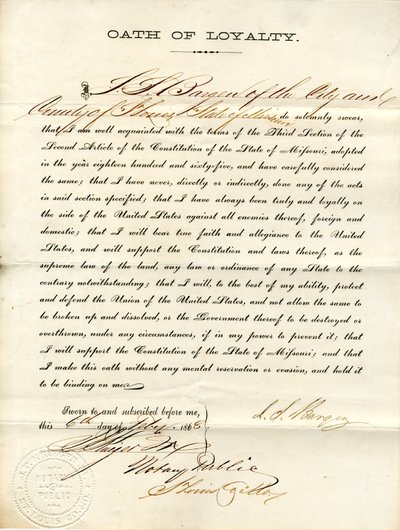 OATH OF LOYALTY.
I, L. S. Bargen of the City and
County of St Louis, State of Missouri do solemnly swear,
that I am well acquainted with the terms of the Third Section of the
Second Article of the Constitution of the State of Missouri, adopted
in the year eighteen hundred and sixty-five, and have carefully considered
the same; that I have never, directly or indirectly, done any of the acts
in said section specified; that I have always been truly and loyally on
the side of the United States against all enemies thereof, foreign and
domestic; that I will bear true faith and allegiance to the United
States, and will support the Constitution and laws thereof, as the
supreme law of the land, any law or ordinance of any State to the
contrary notwithstanding; that I will, to the best of my ability, protect
and defend the Union of the United States, and not allow the same to
be broken up and dissolved, or the Government thereof to be destroyed or
overthrown, under any circumstances, if in my power to prevent it; that
I will support the Constitution of the State of Missouri; and that
I make this oath without any mental reservation or evasion, and hold it
to be binding on me.
L. S. Bargen
Sworn to and subscribed before me,
this 6th day of 1868.
Notary Public
St Louis
NOTARY
PUBLIC